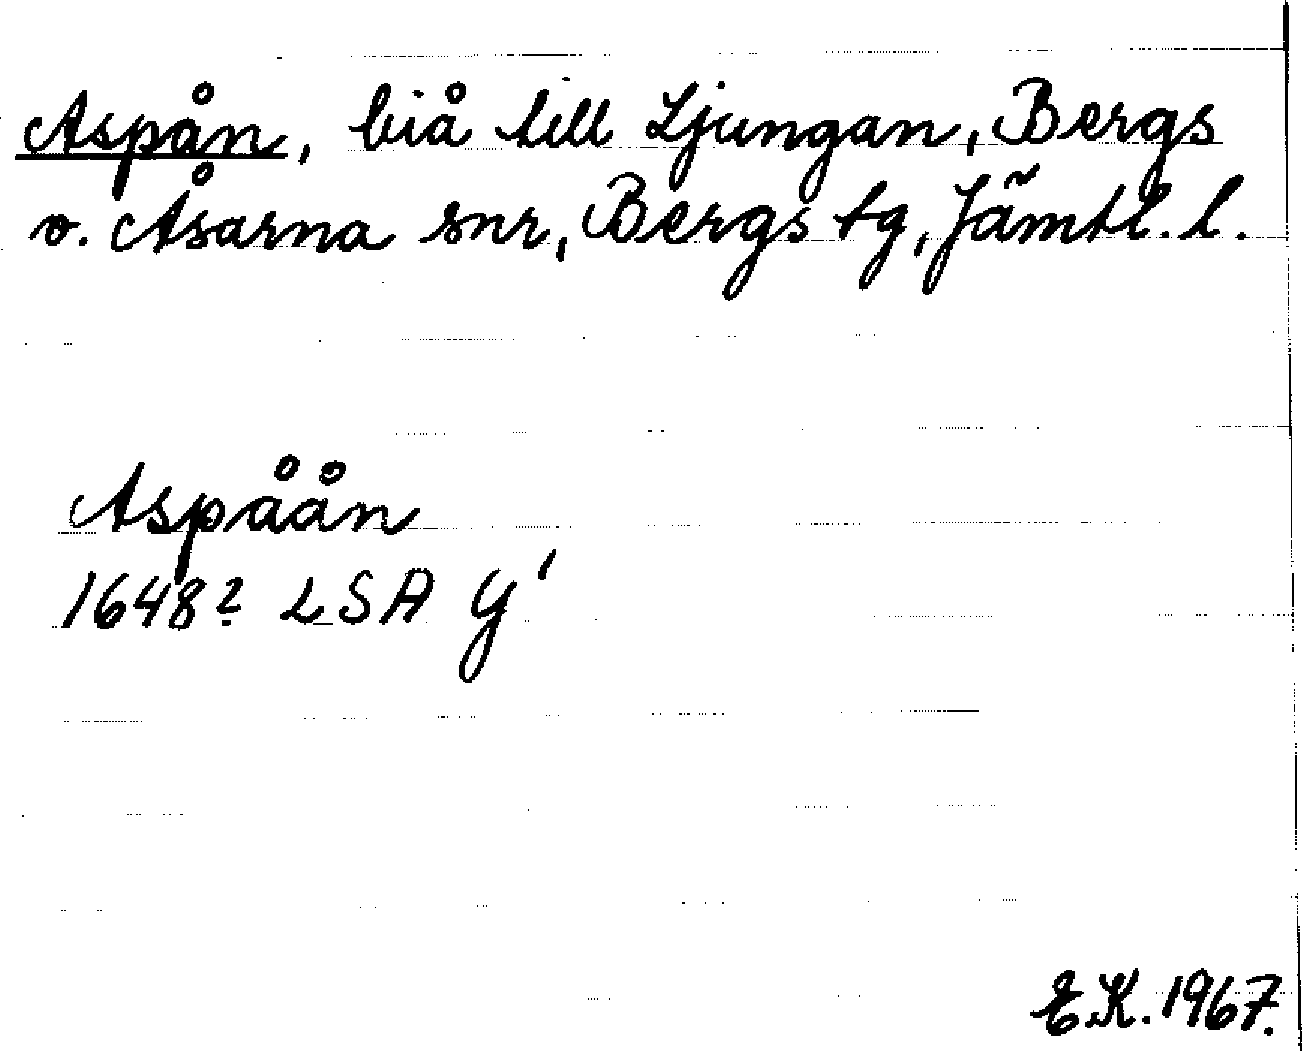 Aspån, biå till Ljungan, Bergs
o. Åsarna snr, Bergs tg, Jämtl. l.
Aspåån
1648? LSA Y'
E.K. 1967.